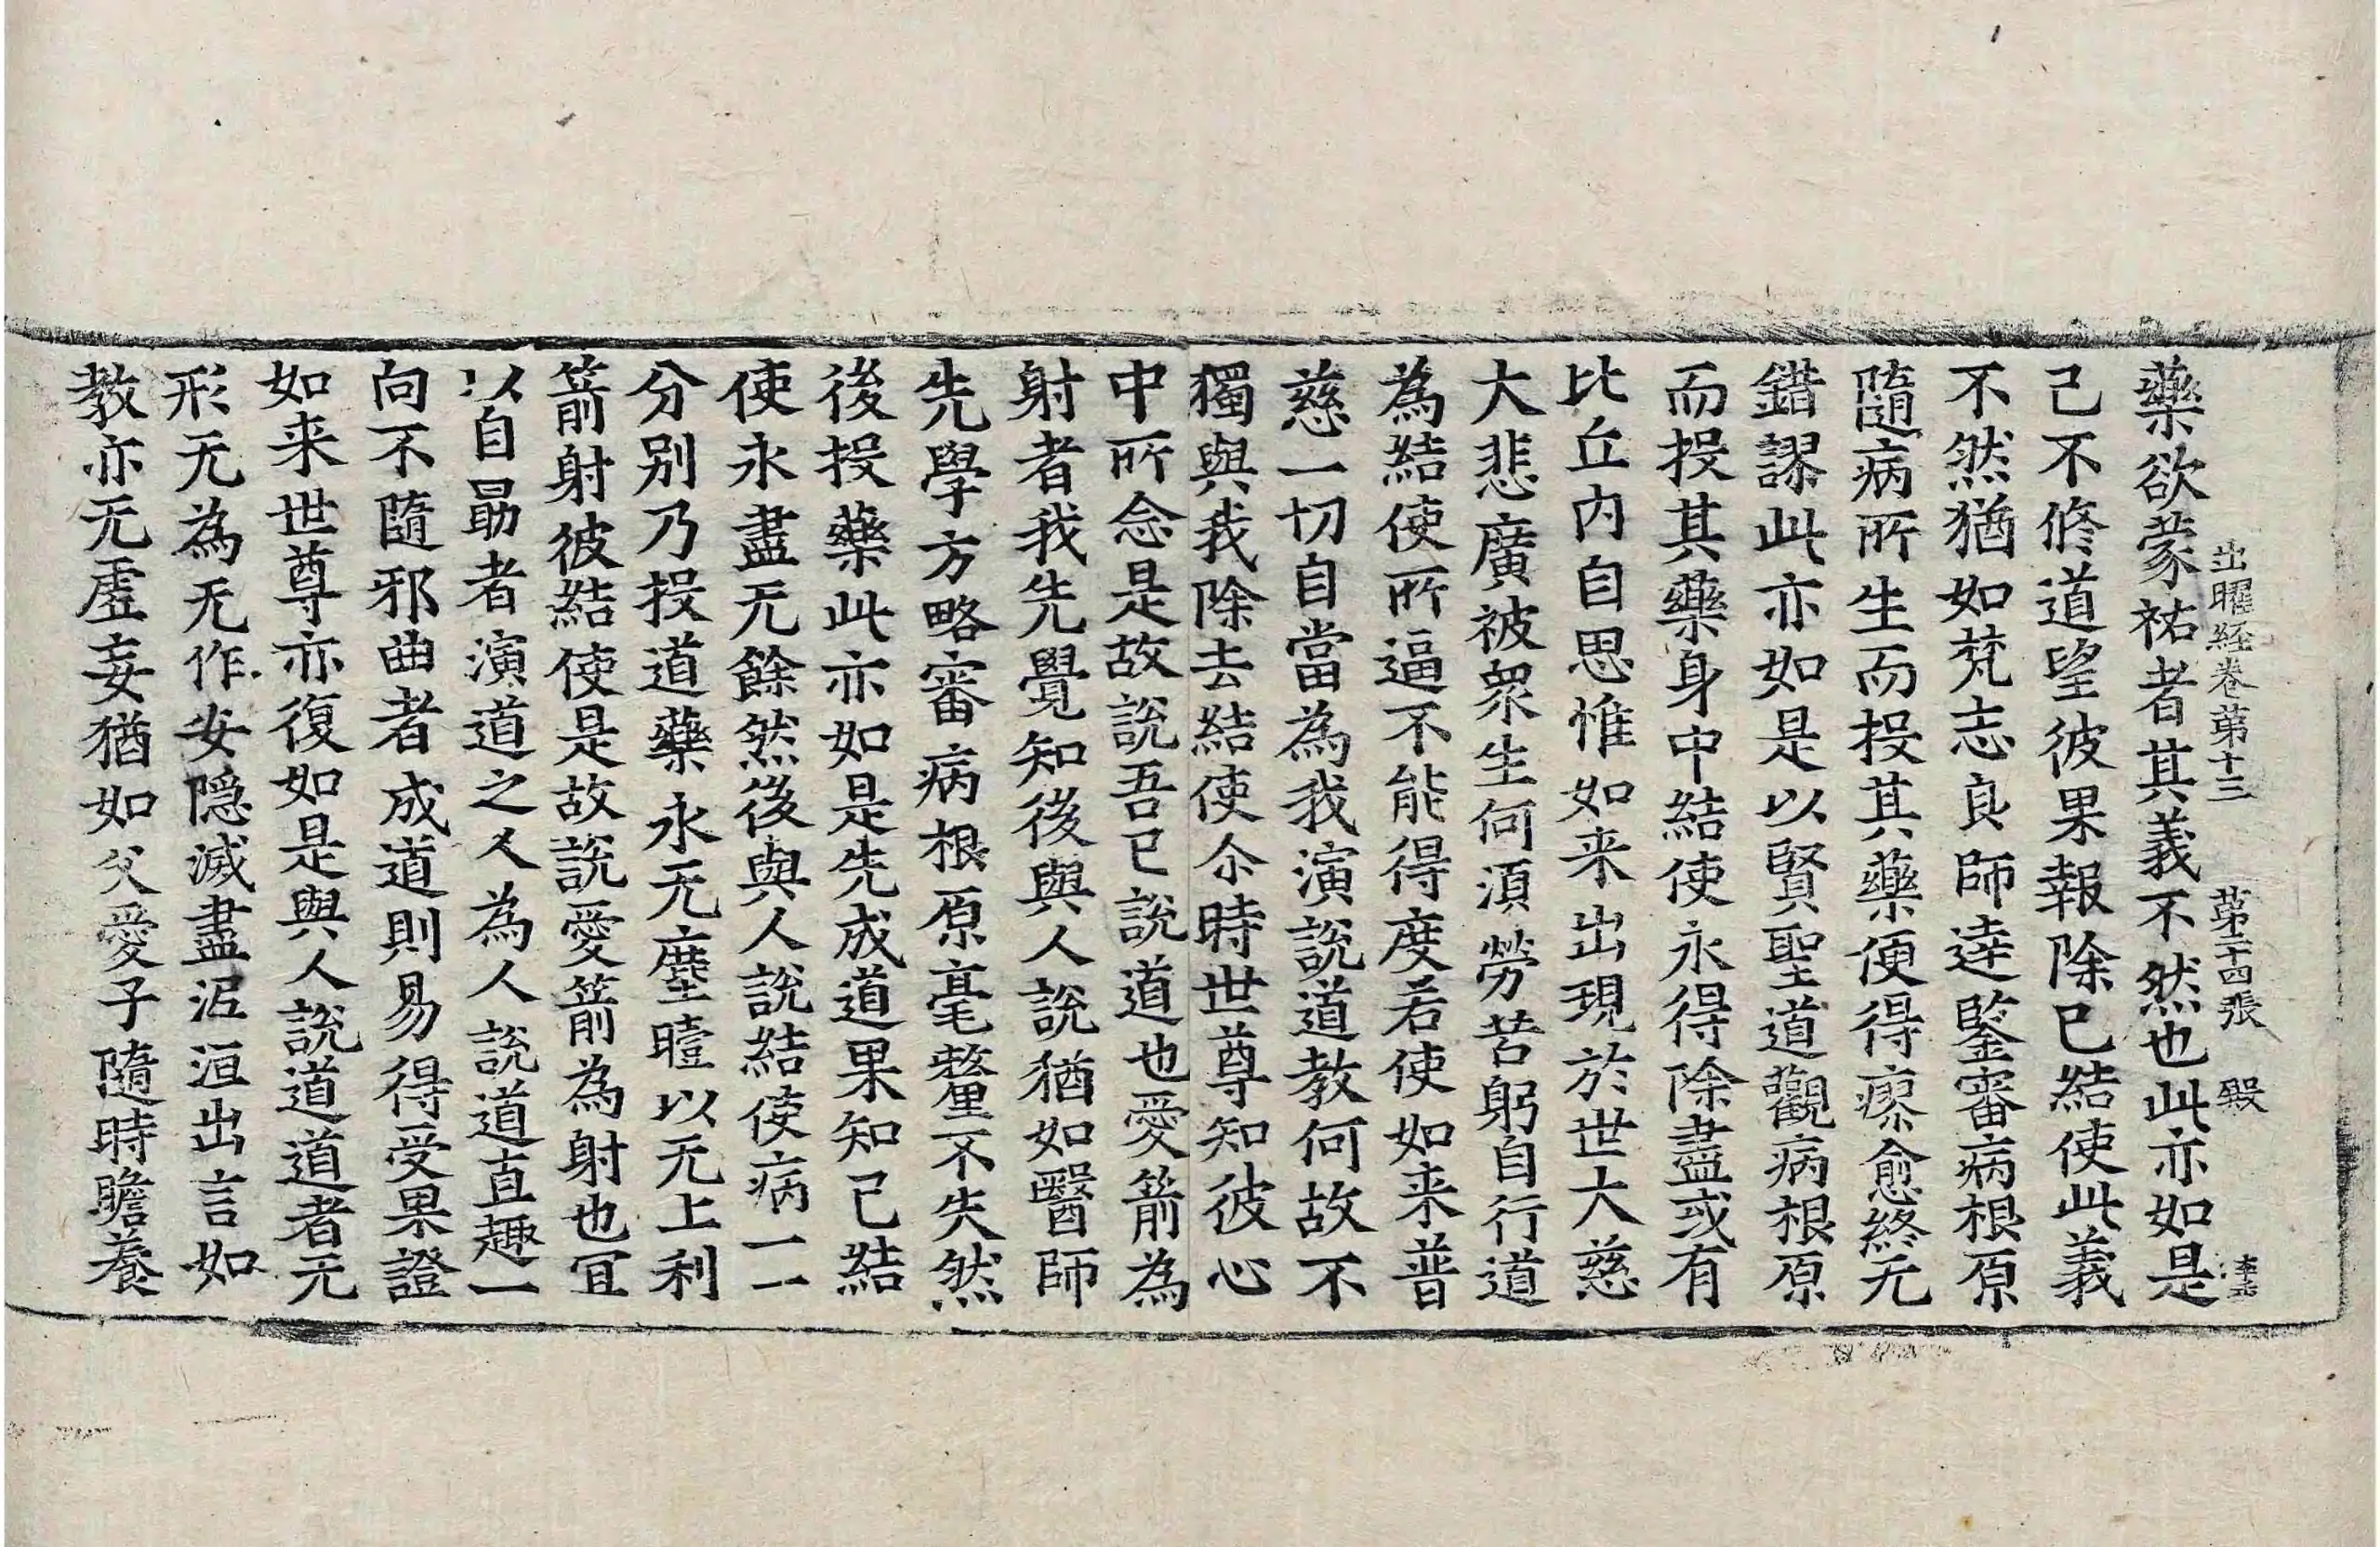 出曜経卷苐十三　苐二十四張　毀
藥欲蒙祐者其義不然也此亦如是
己不修道望彼果報除已結使此義
不然猶如梵志良師逹鑒審病根原
隨病所生而投其藥便得瘳愈終无
錯謬此亦如是以賢聖道觀病根原
而投其藥身中結使永得除盡或有
比丘內自思惟如来出現於世大慈
大悲廣被衆生何湏勞苦躬自行道
為結使所逼不能得度若使如来普
慈一切自當為我演說道教何故不
獨與我除去結使尒時世尊知彼心
中所念是故說吾已說道也愛箭為
射者我先覺知後與人說猶如醫師
先學方略審病根原毫釐不失然
後投藥此亦如是先成道果知已結
使永盡无餘然後與人說結使病一一
分別乃投道藥永无塵曀以无上利
箭射彼結使是故說愛箭為射也冝
以自勗者演道之人為人說道直趣一
向不隨邪曲者成道則易得受果證
如来世尊亦復如是與人說道道者无
形无為无作安隱滅盡泥洹出言如
教亦无虛妄猶如父愛子隨時瞻養